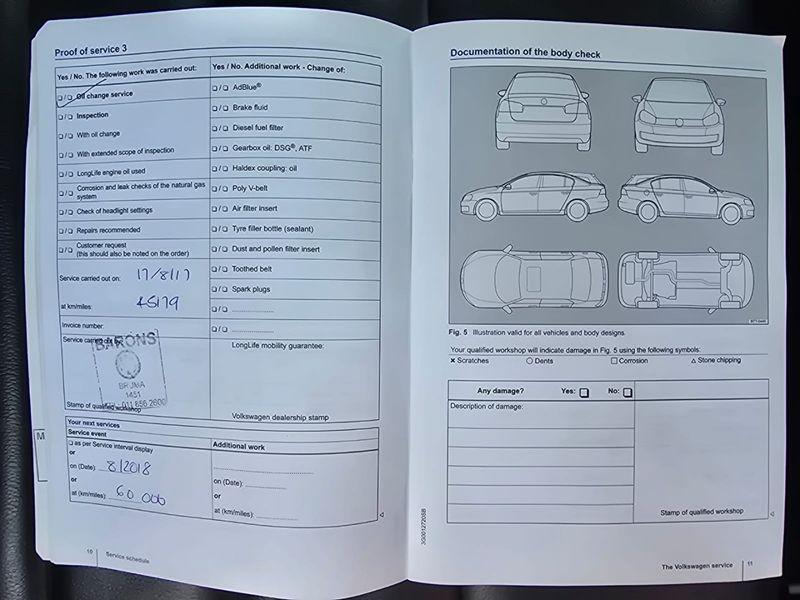 Proof of service 3
Yes / No. The following work was carried out:
Yes / No. Additional work - Change of:
Oil change service
AdBlue®
Inspection
Brake fluid
With oil change
Diesel fuel filter
With extended scope of inspection
Gearbox oil: DSG®, ATF
LongLife engine oil used
Haldex coupling: oil
Corrosion and leak checks of the natural gas
system
Poly V-belt
Check of headlight settings
Air filter insert
Repairs recommended
Tyre filler bottle (sealant)
Customer request
(this should also be noted on the order)
Dust and pollen filter insert
Service carried out on: 17/8/17
Toothed belt
at km/miles: 45179
Spark plugs
Invoice number:
Service carried out by:
LongLife mobility guarantee:
BARONS
BRUMA
1451
011 856 2600
Stamp of qualified workshop
Volkswagen dealership stamp
Your next services
Service event
as per Service interval display
Additional work
or
on (Date): 8/2018
on (Date):
or
or
at (km/miles): 60 000
at (km/miles):
10 Service schedule
Documentation of the body check
Fig. 5 Illustration valid for all vehicles and body designs.
Your qualified workshop will indicate damage in Fig. 5 using the following symbols:
Scratches Dents Corrosion Stone chipping
Any damage? Yes: No:
Description of damage:
Stamp of qualified workshop
3G0012720SB
The Volkswagen service 11